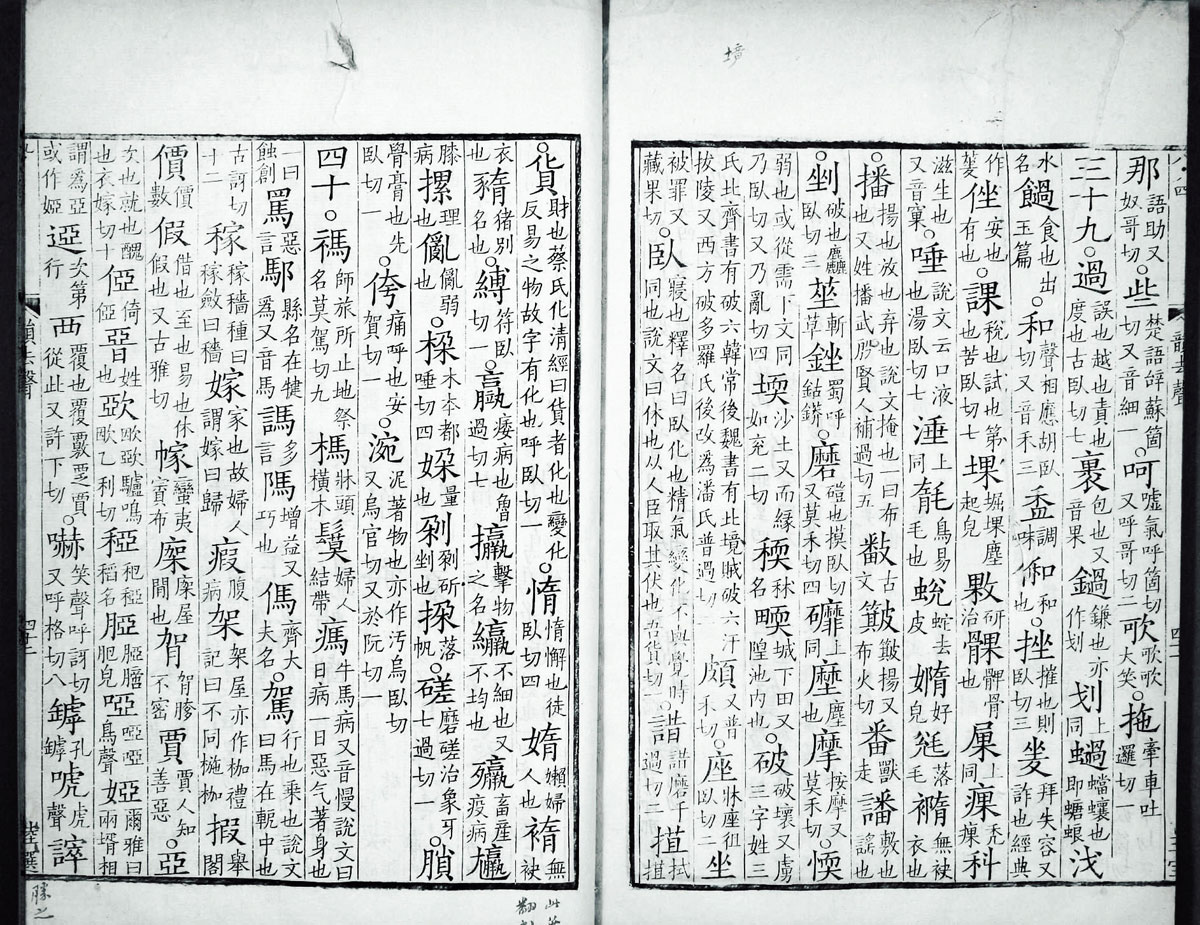 那語助又奴哥切。些楚語辭蘇箇切又音細一。呵噓氣呼箇切又呼哥切二歌歌歌大笑。拖牽車吐邏切一
三十九。過誤也越也責也度也古臥切七裹包也又音果鍋鐮也亦作划划同上蝸蟷蠰也即螗蜋㳀
水名食也出玉篇。和聲相應胡臥切又音禾三盉調味也俰和也。挫摧也則臥切三夎拜失容又詐也經典
作蓌侳安也有也。課稅也試也第也苦臥切七堁堀堁塵起皃敤研治髁髀骨也同上秃科
滋生也又音窠。唾說文云口液也湯臥切七涶同上毻鳥易毛也蛻蛇去皮嫷好皃毤落毛無袂衣也
。播揚也放也弃也說文掩也一曰布也又姓播武殷賢人補過切五古文簸簸揚又布火切番獸走譒敷也謠也
。剉破也麤臥切三莝斬草銼蜀呼鈷䥈。磨磑也摸臥切又莫禾切四䃺同上塺塵也摩按摩又莫禾切。愞
弱也或從需下文同乃臥切又乃亂切四堧沙土又而緣如兖二切稬秫名城下田又隍池內也。破破壞又虜三字姓三
氏北齊書有破六韓常後魏書有北境賊破六汗拔陵又西方破多羅氏後改為潘氏普過切一頗又普禾切。座牀座徂臥切二坐
被罪又藏果切。臥寢也釋名曰臥化也精氣變化不與覺時同也說文曰休也从人臣取其伏也吾貨切一。諎磨千過切二拭
。貨財也蔡氏化清經曰貨者化也變化反易之物故字有化也呼臥切一。惰惰懈也徒臥切四媠嬾婦人也無袂
衣也豬別名也。縛符臥切一。痿病也魯過切七擊物之名不細也又不均也畜產疫病
膝病摞理也弱也。木本都唾切四量也剁剁斫剉也挅落帆。磋磨磋治象牙七過切一。
骨膏也先臥切一。侉痛呼也安賀切一。涴泥著物也亦作汚烏臥切又烏官切又於阮切一
四十。禡師旅所止地祭名莫駕切九榪牀頭橫木婦人結帶牛馬病又音慢說文曰目病一曰惡气著身也
一曰蝕創罵惡言縣名在犍為又音馬多言增益又巧也傌齊大夫名。駕行也乘也說文曰馬在軛中也
古訝切十二稼稼穡種曰稼斂曰穡嫁家也故婦人謂嫁曰歸瘕腹病架架屋亦作枷禮記曰不同椸枷舉閣
價價數假借也至也易也休假也又古雅切幏蠻夷賨布㡋㡋屋間也不密賈賈人知善惡。亞
次也就也醜也衣嫁切十俹倚俹晋姓也歐亞驢鳴歐乙利切稏䆉稏稻名肥皃啞啞啞鳥聲婭爾雅曰兩壻相
謂為亞或作婭逗次第行襾覆也覆覈賈從此又許下切。嚇笑聲呼訝切又呼格切八罅孔罅唬虎聲謼